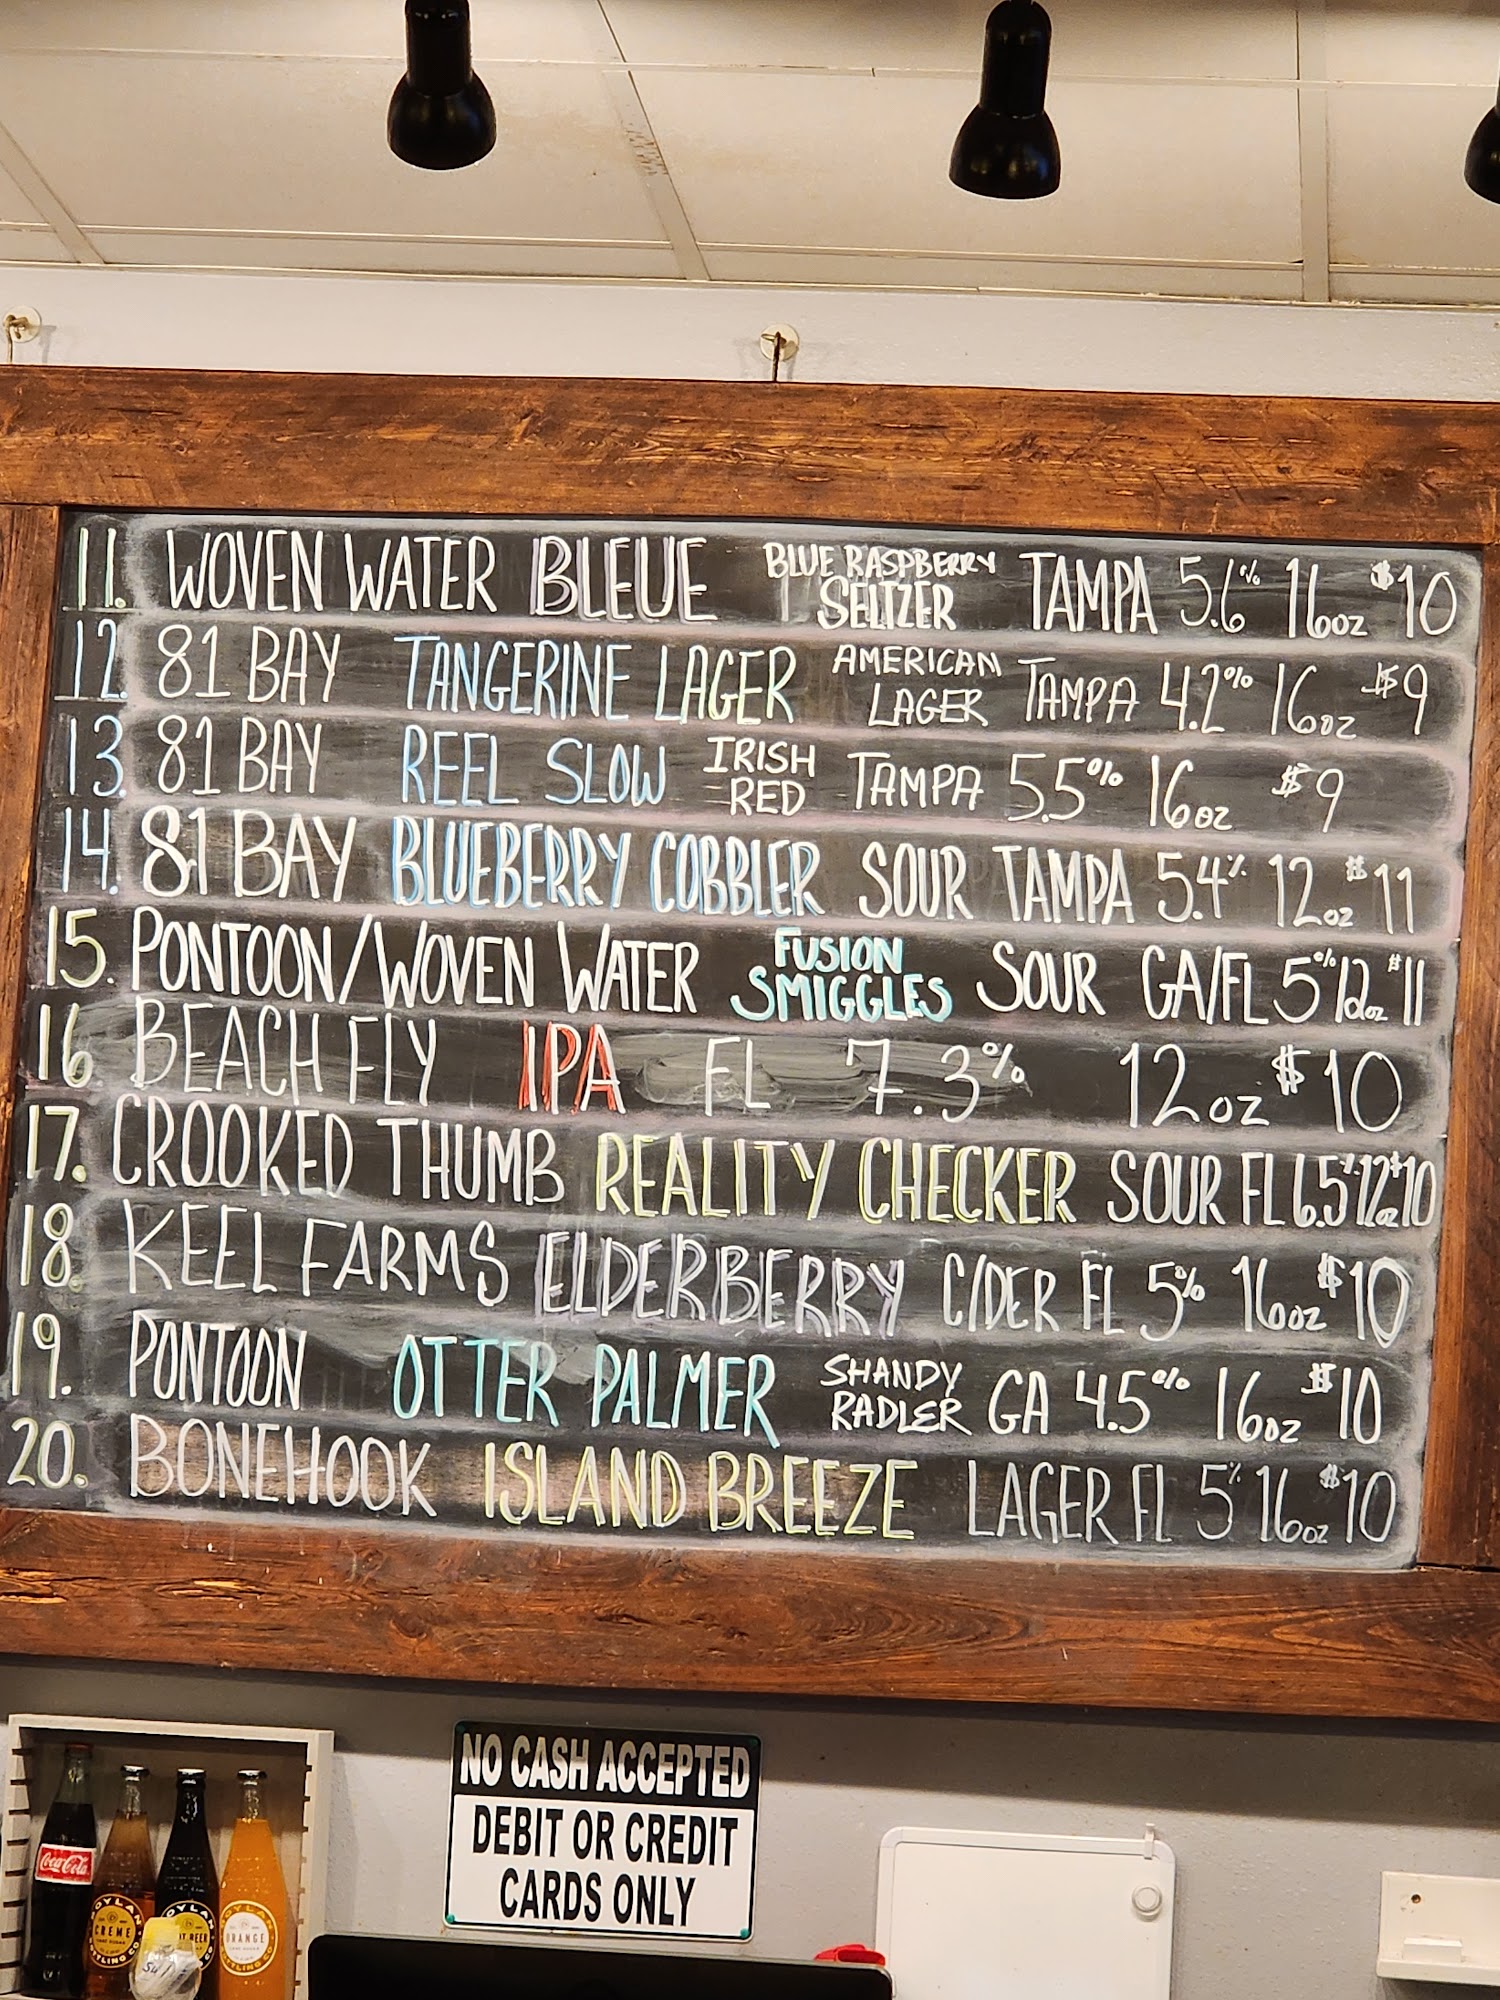 11. WOVEN WATER BLEUE BLUE RASPBERRY SELTZER TAMPA 5.6% 16oz $10
12. 81 BAY TANGERINE LAGER AMERICAN LAGER TAMPA 4.2% 16oz $9
13. 81 BAY REEL SLOW IRISH RED TAMPA 5.5% 16oz $9
14. 81 BAY BLUEBERRY COBBLER SOUR TAMPA 5.4% 12oz $11
15. PONTOON/WOVEN WATER FUSION SMIGGLES SOUR GA/FL 5% 12oz $11
16 BEACH FLY IPA FL 7.3% 12oz $10
17. CROOKED THUMB REALITY CHECKER SOUR FL 6.5% 12oz $10
18. KEEL FARMS ELDERBERRY CIDER FL 5% 16oz $10
19. PONTOON OTTER PALMER SHANDY RADLER GA 4.5% 16oz $10
20. BONEHOOK ISLAND BREEZE LAGER FL 5% 16oz $10
NO CASH ACCEPTED
DEBIT OR CREDIT
CARDS ONLY
Coca-Cola
CREME
BEER
ORANGE